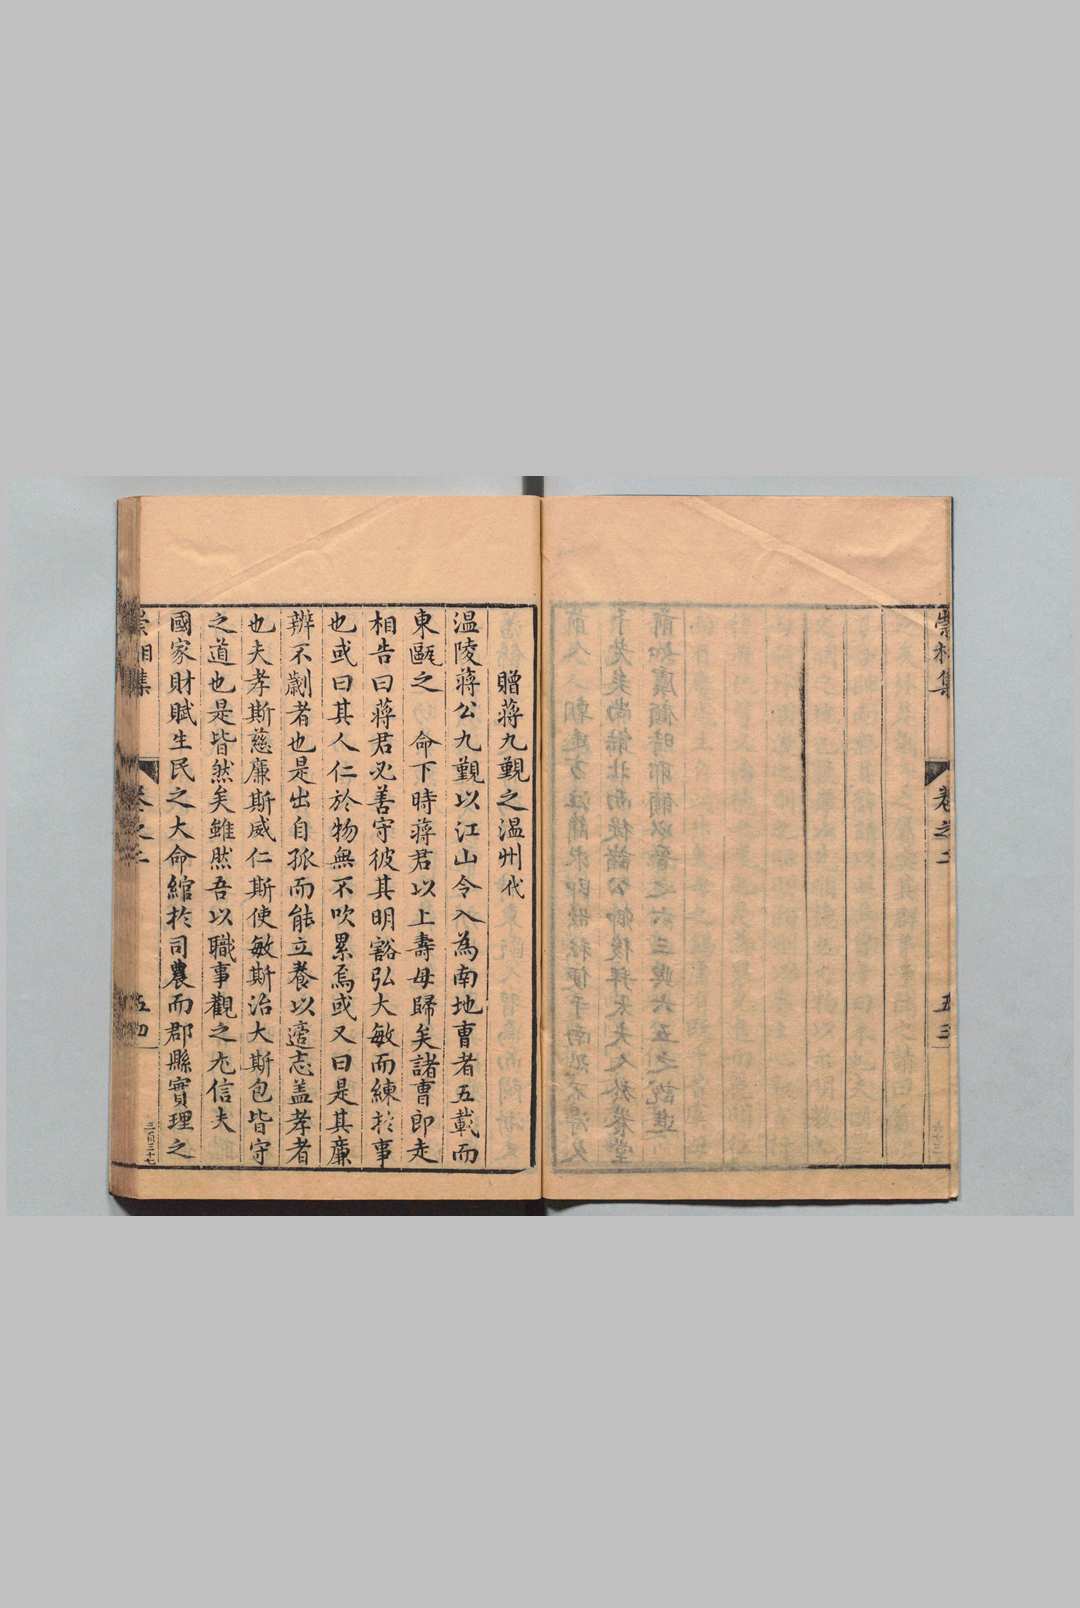 崇相集
卷之二
五三
贈蔣九觐之温州代
温陵蔣公九觐以江山令入為南地曹者五載而
東甌之 命下時蔣君以上壽母歸矣諸曹即走
相告曰蔣君必善守彼其明豁弘大敏而練扵事
也或曰其人仁於物無不吹累焉或又曰是其廉
辨不劌者也是出自孤而能立養以適志盖孝者
也夫孝斯慈廉斯威仁斯使敏斯治大斯包皆守
之道也是皆然矣雖然吾以職事觀之尤信夫
國家財賦生民之大命綰扵司農而郡縣實理之
崇相集
卷之二
五四
三百三十七